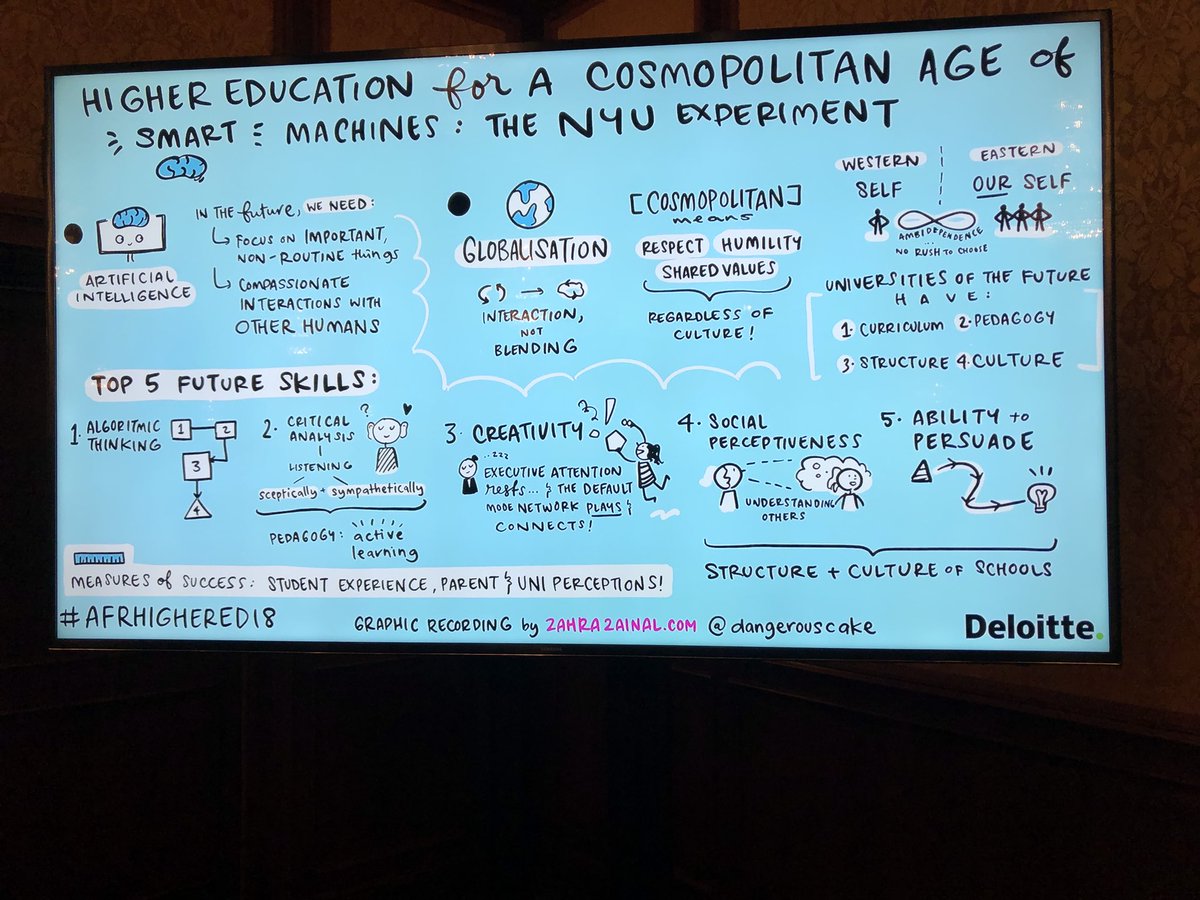 HIGHER EDUCATION for A COSMOPOLITAN AGE of
SMART MACHINES: THE NYU EXPERIMENT
ARTIFICIAL
INTELLIGENCE
IN THE future, WE NEED:
FOCUS ON IMPORTANT,
NON-ROUTINE things
COMPASSIONATE
INTERACTIONS WITH
OTHER HUMANS
GLOBALISATION
INTERACTION,
NOT
BLENDING
[COSMOPOLITAN]
means
RESPECT HUMILITY
SHARED VALUES
REGARDLESS OF
CULTURE!
WESTERN
SELF
EASTERN
OUR SELF
AMBIDEPENDENCE
...
NO RUSH TO CHOOSE
UNIVERSITIES OF THE FUTURE
HAVE:
1. CURRICULUM 2. PEDAGOGY
3. STRUCTURE 4. CULTURE
TOP 5 FUTURE SKILLS:
1. ALGORITMIC
THINKING
1 2
3
4
2. CRITICAL
ANALYSIS
LISTENING
sceptically + sympathetically
PEDAGOGY: active
learning
?
3. CREATIVITY
..zzz
EXECUTIVE ATTENTION
rests... & THE DEFAULT
MODE NETWORK PLAYS &
CONNECTS!
4. SOCIAL
PERCEPTIVENESS
UNDERSTANDING
OTHERS
5. ABILITY to
PERSUADE
STRUCTURE + CULTURE OF SCHOOLS
MEASURES of SUCCESS: STUDENT EXPERIENCE, PARENT & UNI PERCEPTIONS!
#AFRHIGHERED18
GRAPHIC RECORDING by ZAHRAZAINAL.COM @dangerouscake
Deloitte.